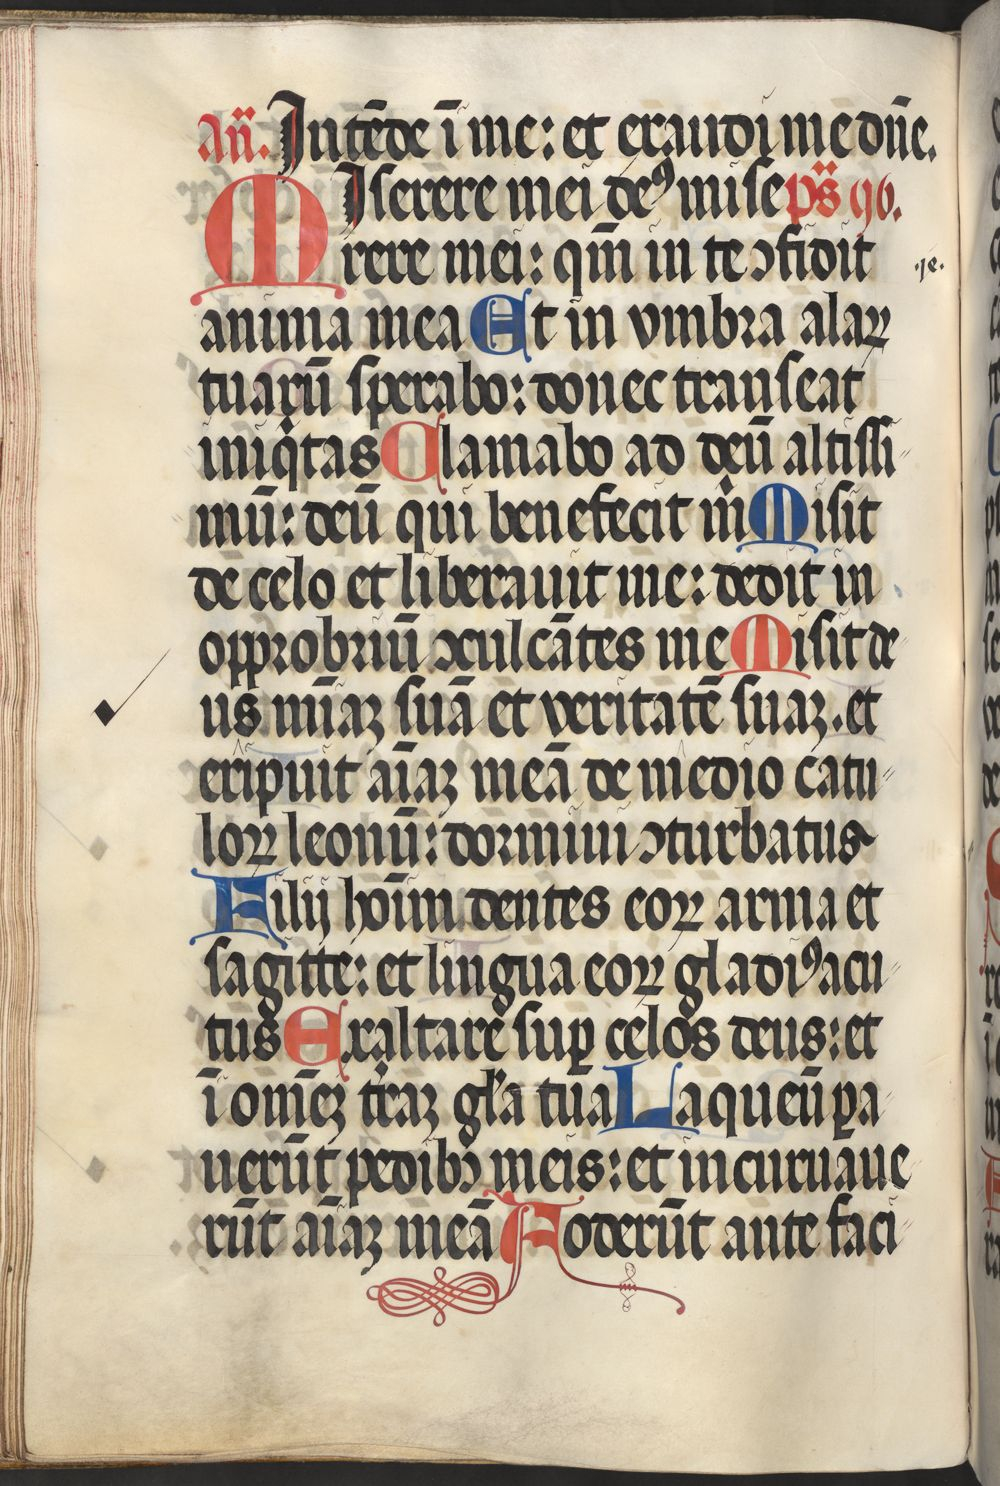 Añ. Intēde ī me: et exaudi me dñe.
MIserere mei deꝰ mise p̄s 96.
rere mei: qm̄ in te ↄfidit
·je·
anima mea Et in vmbra alaꝝ
tuarū sperabo: donec transeat
iniqͥtas Clamabo ad deū altissi
mū: deū qui benefecit m̄ Misit
de celo et liberauit me: dedit in
opprobriū ↄculcātes me Misit de
us m̄iaꝫ suā et veritatē suaꝫ. et
eripuit aīaꝫ meā de medio catu
loꝝ leonū: dormiui ↄturbatus
Filij hoīm dentes eoꝝ arma et
sagitte: et lingua eoꝝ gladiꝰ acu
tus Exaltare suꝑ celos deus: et
ī om̄eꝫ tr̄aꝫ gl'a tua Laqueū ꝑa
uerūt pedibꝰ meis: et incuruaue
rūt aīaꝫ meā Foderūt ante faci